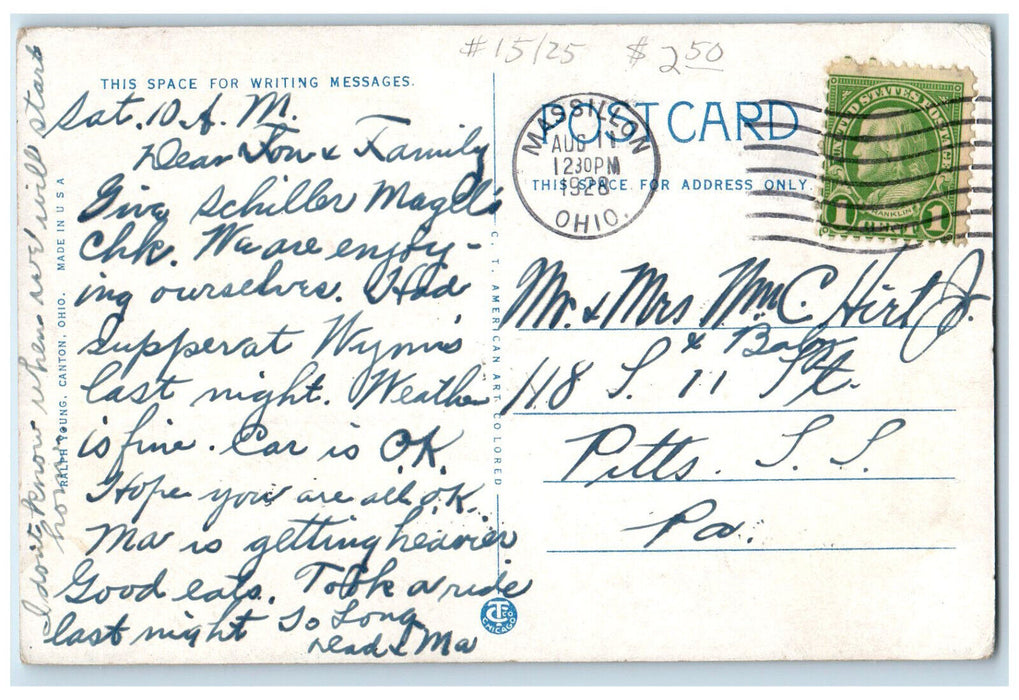 #15/25 $2.50
THIS SPACE FOR WRITING MESSAGES.
Sat. 10 A. M.
Dear Son & Family
Give Schiller Magll's
Chk. We are enjoy-
ing ourselves. Had
supper at Wynn's
last night. Weather
is fine. Car is O.K.
Hope you are all O.K.
Ma is getting heavier
Good eats. Took a ride
last night So Long
Dad & Ma
I don't know when we will start
home
RALPH YOUNG, CANTON, OHIO. MADE IN U S A
C. T. AMERICAN ART COLORED
CHICAGO
POST CARD
THIS SPACE FOR ADDRESS ONLY.
MASSILLON
AUG 11
1230PM
1928
OHIO.
UNITED STATES POSTAGE
FRANKLIN
1 CENT 1
Mr. & Mrs Wm C. Hirt Jr.
& Baby
118 S. 11 St.
Pitts. S. S.
Pa.